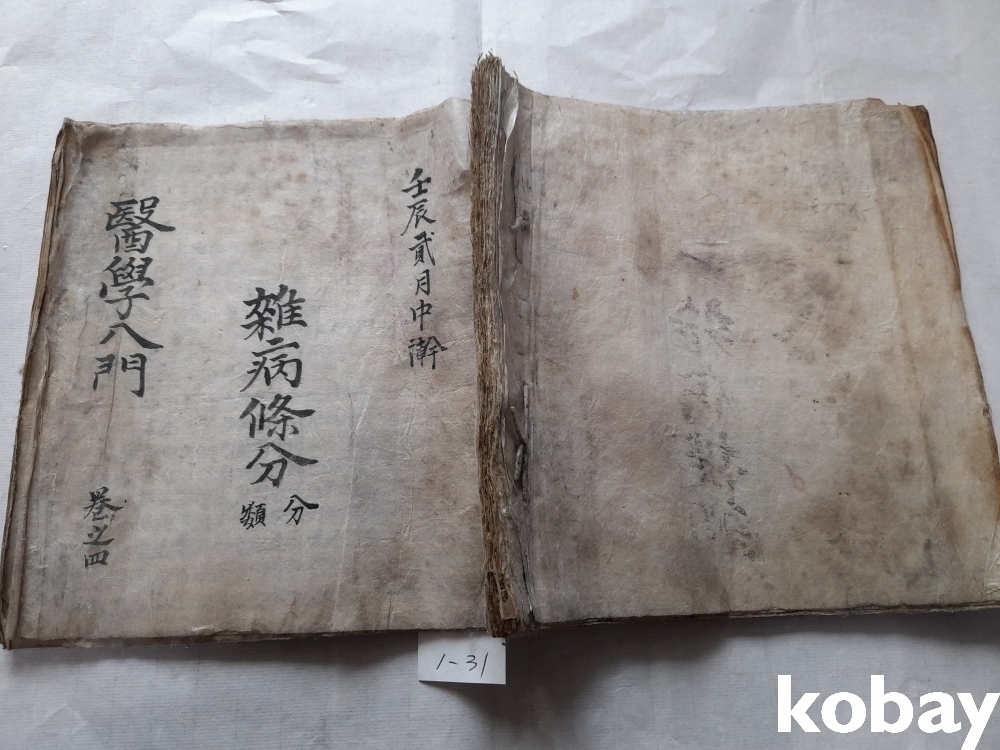 壬辰貳月中澣
雜病條分
分類
醫學八門
卷之四
1-31
kobay